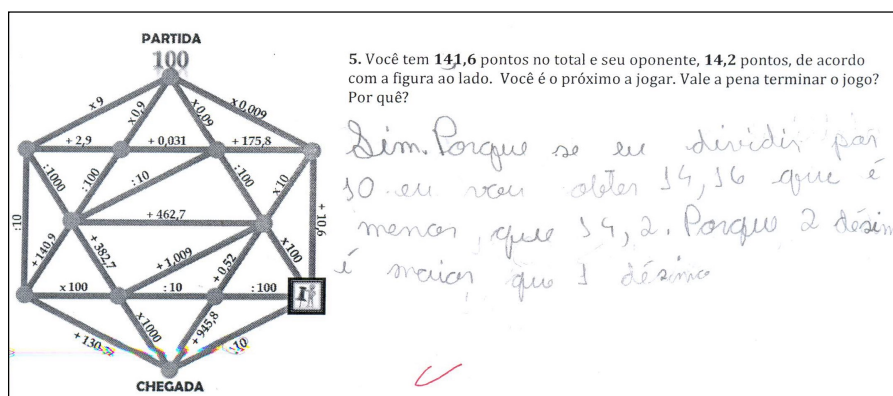 PARTIDA
100
x 9
x 0,9
x 0,09
x 0,009
+ 2,9
+ 0,031
+ 175,8
: 1000
: 100
: 10
: 100
x 10
: 10
+ 462,7
+ 10,6
+ 140,9
+ 382,7
+ 1,009
+ 0,52
x 100
x 100
: 10
: 100
+ 130,
x 1000
+ 945,8
:10
CHEGADA
5. Você tem 141,6 pontos no total e seu oponente, 14,2 pontos, de acordo
com a figura ao lado. Você é o próximo a jogar. Vale a pena terminar o jogo?
Por quê?
Sim. Porque se eu dividir por
10 eu vou obter 14,16 que é
menor que 14,2. Porque 2 désim
é maior que 1 désimo